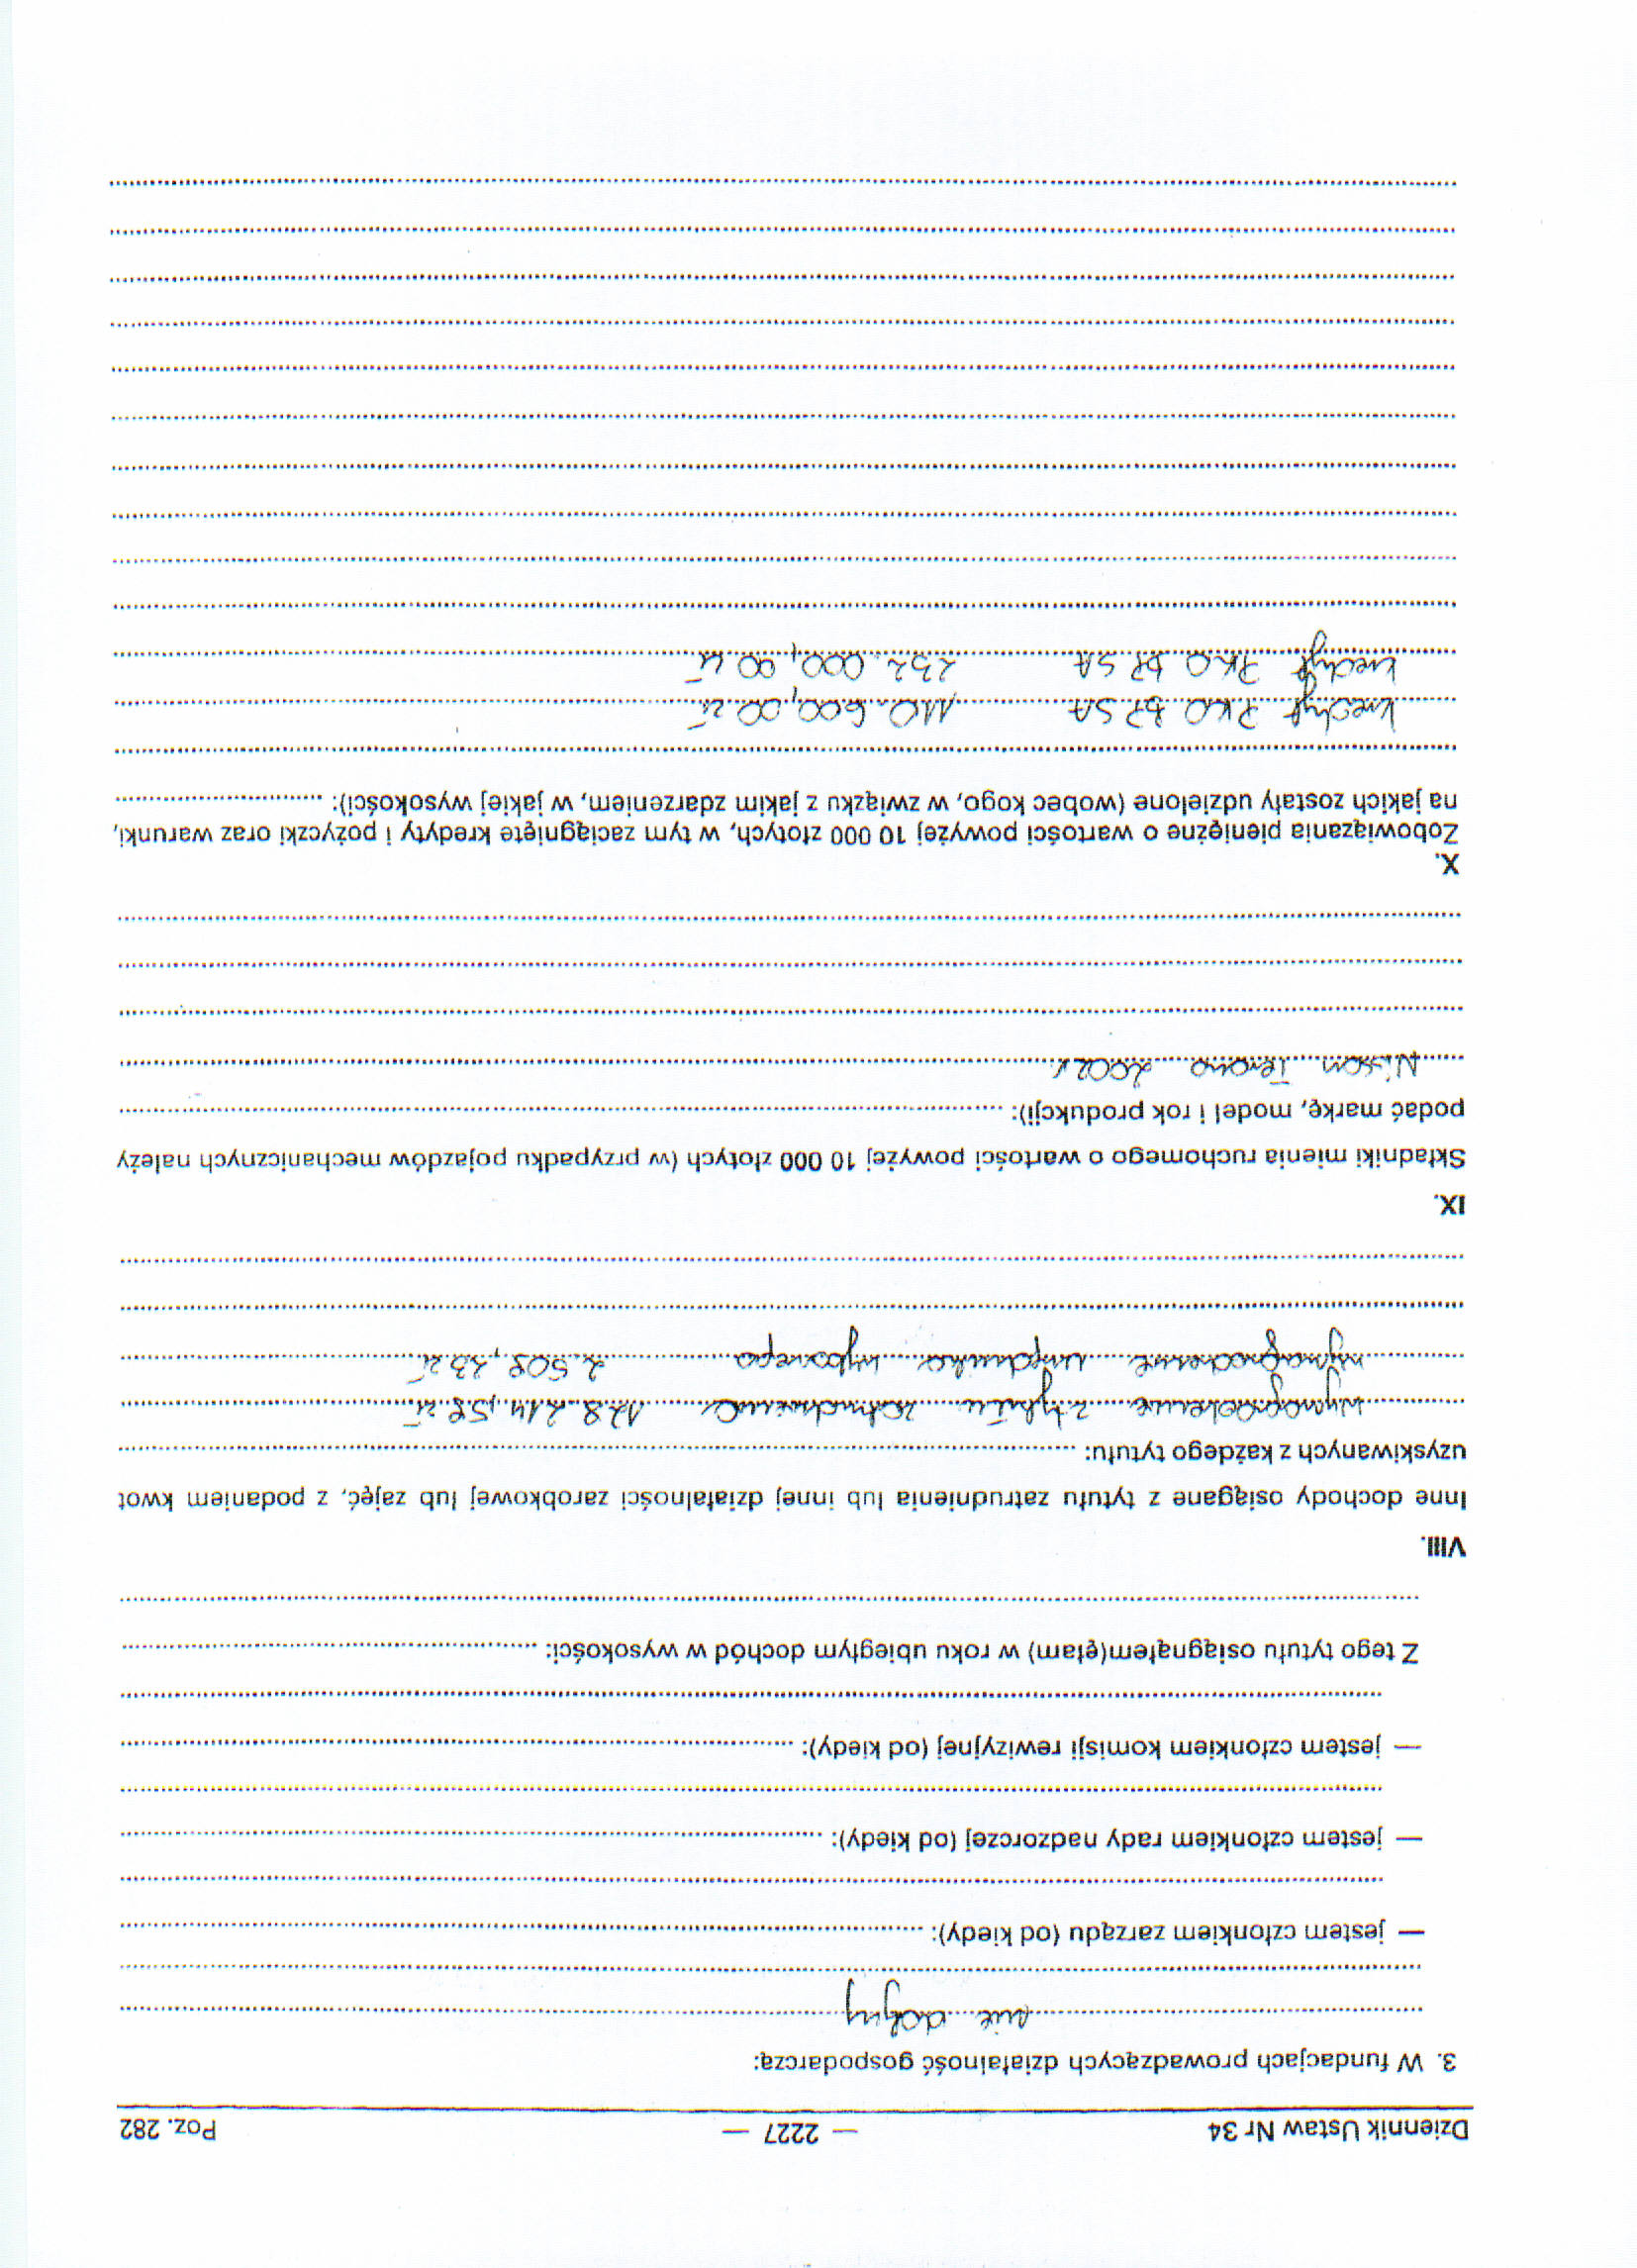 Dziennik Ustaw Nr 34 — 2227 — Poz. 282
3. W fundacjach prowadzących działalność gospodarczą:
nie dotyczy
— jestem członkiem zarządu (od kiedy):
— jestem członkiem rady nadzorczej (od kiedy):
— jestem członkiem komisji rewizyjnej (od kiedy):
Z tego tytułu osiągnąłem(ęłam) w roku ubiegłym dochód w wysokości:
VIII.
Inne dochody osiągane z tytułu zatrudnienia lub innej działalności zarobkowej lub zajęć, z podaniem kwot
uzyskiwanych z każdego tytułu:
wynagrodzenie z tytułu zatrudnienia 128.214,58 zł
wynagrodzenie urzędnika wyborczego 2.508,23 zł
IX.
Składniki mienia ruchomego o wartości powyżej 10 000 złotych (w przypadku pojazdów mechanicznych należy
podać markę, model i rok produkcji):
Nissan Terano 2002 r
X.
Zobowiązania pieniężne o wartości powyżej 10 000 złotych, w tym zaciągnięte kredyty i pożyczki oraz warunki,
na jakich zostały udzielone (wobec kogo, w związku z jakim zdarzeniem, w jakiej wysokości):
kredyt PKO BP SA 110.600,00 zł
kredyt PKO BP SA 232.000,00 zł